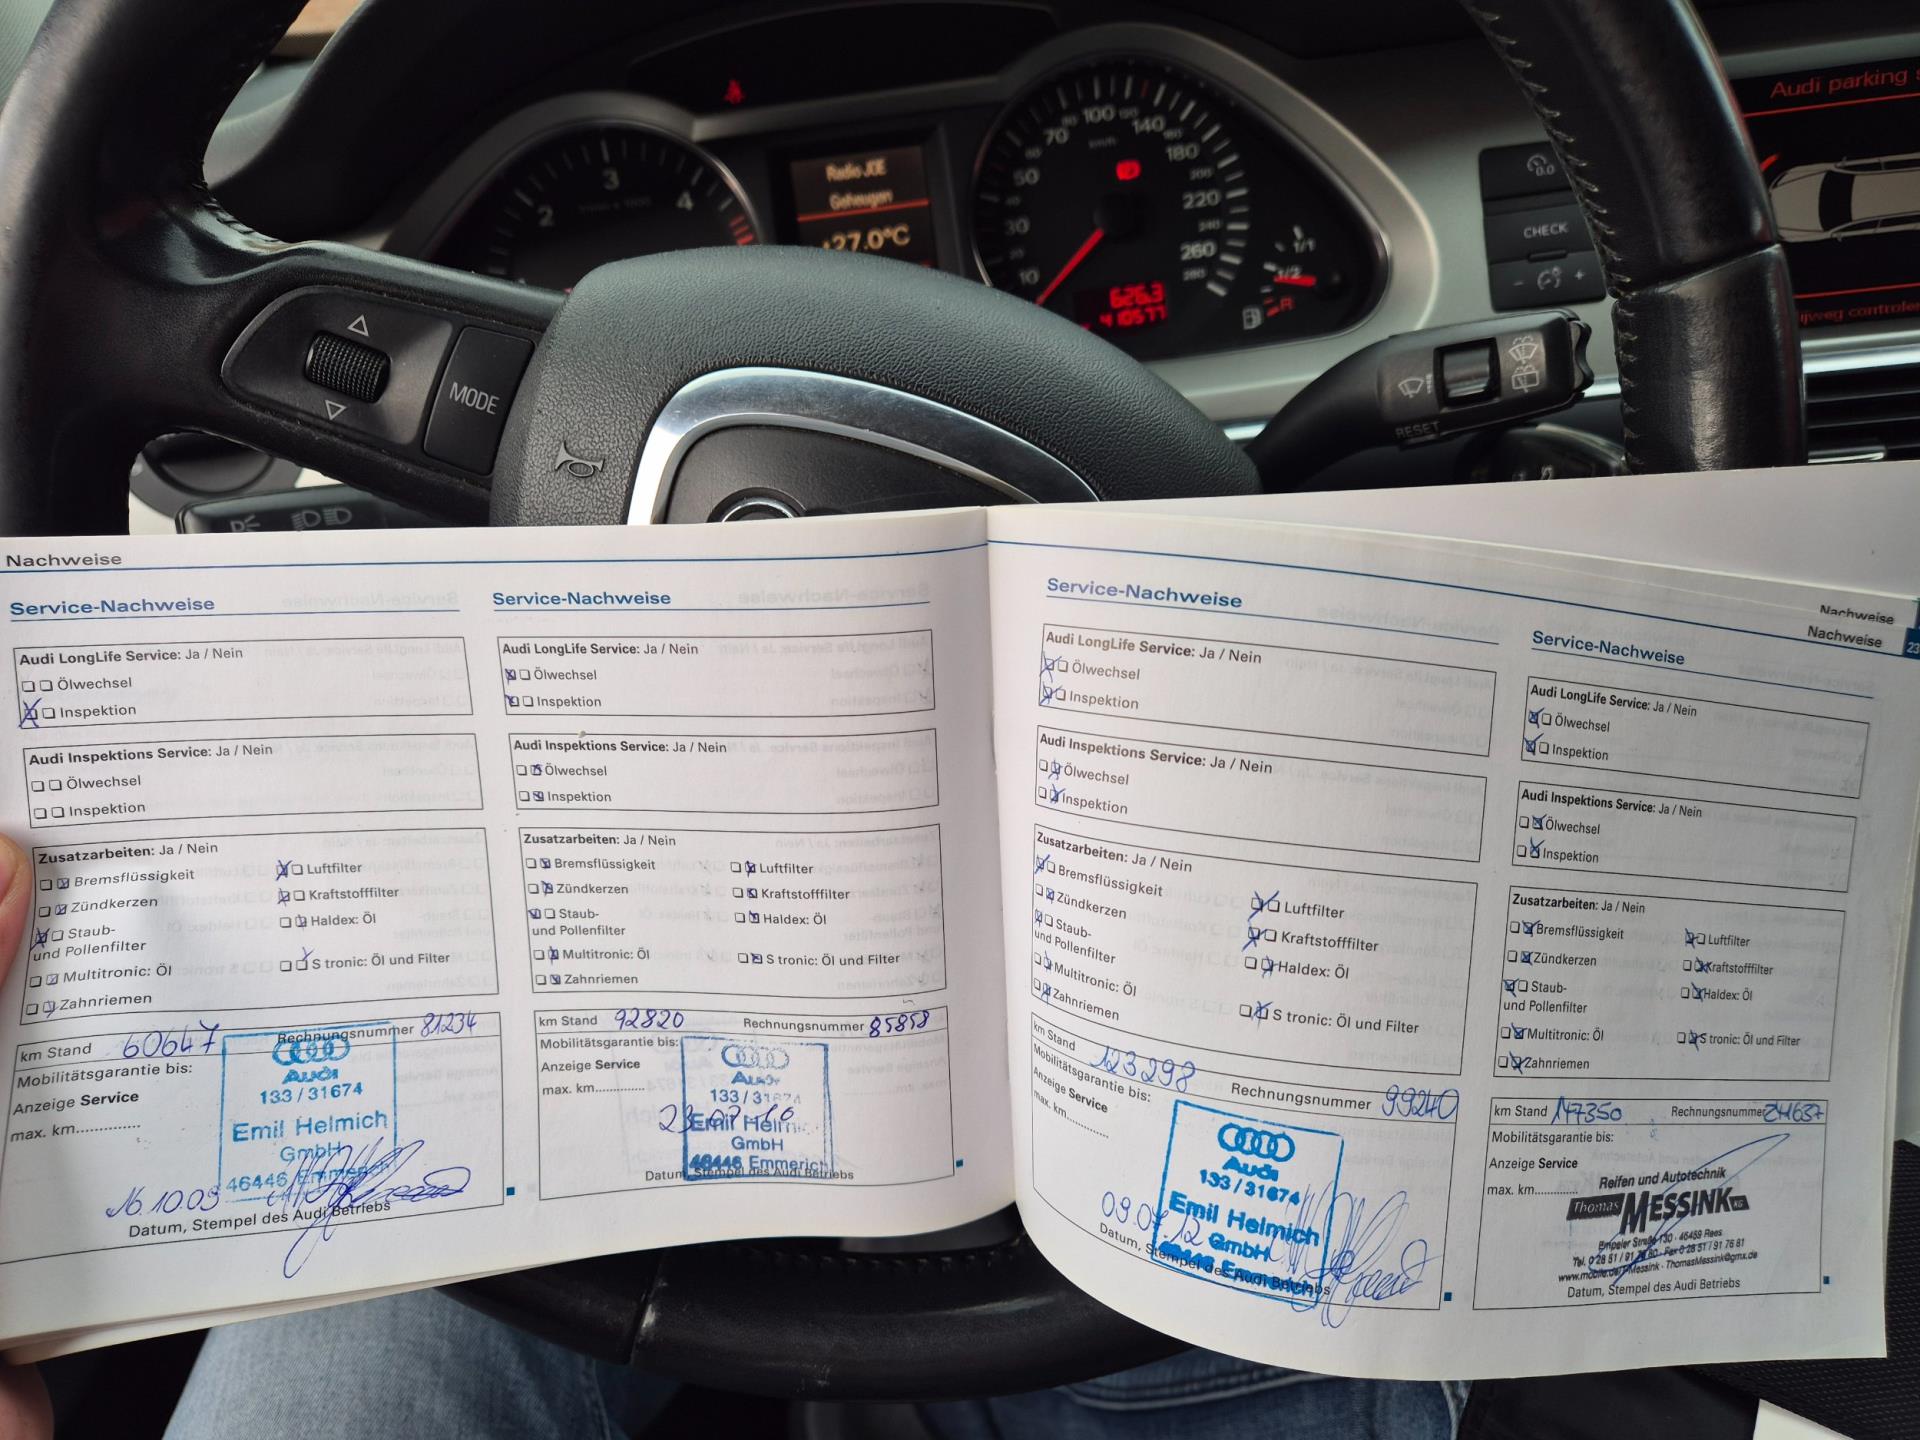 Audi parking
1/min x 1000
2
3
4
Radio JOE
Geheugen
+27.0°C
km/h
10
30
50
70
100
140
180
220
260
626.3
410577
1/1
1/2
R
CHECK
- +
MODE
RESET
Nachweise
Service-Nachweise
Audi LongLife Service: Ja / Nein
Ölwechsel
Inspektion
Audi Inspektions Service: Ja / Nein
Ölwechsel
Inspektion
Zusatzarbeiten: Ja / Nein
Bremsflüssigkeit
Luftfilter
Zündkerzen
Kraftstofffilter
Staub-
und Pollenfilter
Haldex: Öl
Multitronic: Öl
S tronic: Öl und Filter
Zahnriemen
km Stand 60647
Rechnungsnummer 81234
Mobilitätsgarantie bis:
Anzeige Service
max. km..............
Audi
133 / 31674
Emil Helmich
GmbH
46446 Emmerich
16.10.09
Datum, Stempel des Audi Betriebs
Service-Nachweise
Audi LongLife Service: Ja / Nein
Ölwechsel
Inspektion
Audi Inspektions Service: Ja / Nein
Ölwechsel
Inspektion
Zusatzarbeiten: Ja / Nein
Bremsflüssigkeit
Luftfilter
Zündkerzen
Kraftstofffilter
Staub-
und Pollenfilter
Haldex: Öl
Multitronic: Öl
S tronic: Öl und Filter
Zahnriemen
km Stand 92820
Rechnungsnummer 85858
Mobilitätsgarantie bis:
Anzeige Service
max. km..............
Audi
133 / 31674
Emil Helmich
GmbH
46446 Emmerich
Datum, Stempel des Audi Betriebs
Nachweise
Nachweise
23
Service-Nachweise
Audi LongLife Service: Ja / Nein
Ölwechsel
Inspektion
Audi Inspektions Service: Ja / Nein
Ölwechsel
Inspektion
Zusatzarbeiten: Ja / Nein
Bremsflüssigkeit
Luftfilter
Zündkerzen
Kraftstofffilter
Staub-
und Pollenfilter
Haldex: Öl
Multitronic: Öl
S tronic: Öl und Filter
Zahnriemen
km Stand 123298
Rechnungsnummer 99240
Mobilitätsgarantie bis:
Anzeige Service
max. km..............
Audi
133 / 31674
Emil Helmich
GmbH
46446 Emmerich
09.07.12
Datum, Stempel des Audi Betriebs
Service-Nachweise
Audi LongLife Service: Ja / Nein
Ölwechsel
Inspektion
Audi Inspektions Service: Ja / Nein
Ölwechsel
Inspektion
Zusatzarbeiten: Ja / Nein
Bremsflüssigkeit
Luftfilter
Zündkerzen
Kraftstofffilter
Staub-
und Pollenfilter
Haldex: Öl
Multitronic: Öl
S tronic: Öl und Filter
Zahnriemen
km Stand 147350
Rechnungsnummer 241637
Mobilitätsgarantie bis:
Anzeige Service
max. km..............
Reifen und Autotechnik
Thomas MESSINK KG
Empeler Straße 130 · 46459 Rees
Tel. 0 28 51 / 91 76 80 · Fax 0 28 51 / 91 76 81
www.mobile.de/T-Messink · ThomasMessink@gmx.de
Datum, Stempel des Audi Betriebs